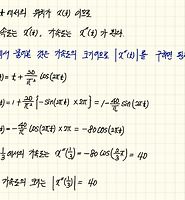 t 에서의 위치가 x(t) 이므로
속도는 x'(t), 가속도는 x''(t) 가 된다.
에서 물어본 것은 가속도의 크기이므로 |x''(t)| 를 구하면 된
(t) = t + 20/π² cos(2πt)
(t) = 1 + 20/π² {-sin(2πt) × 2π} = 1 - 40/π sin(2πt)
(t) = -40/π cos(2πt) × 2π = -80 cos(2πt)
1/3 에서의 가속도는 x''(1/3) = -80 cos(2/3 π) = 40
가속도의 크기는 |x''(1/3)| = 40